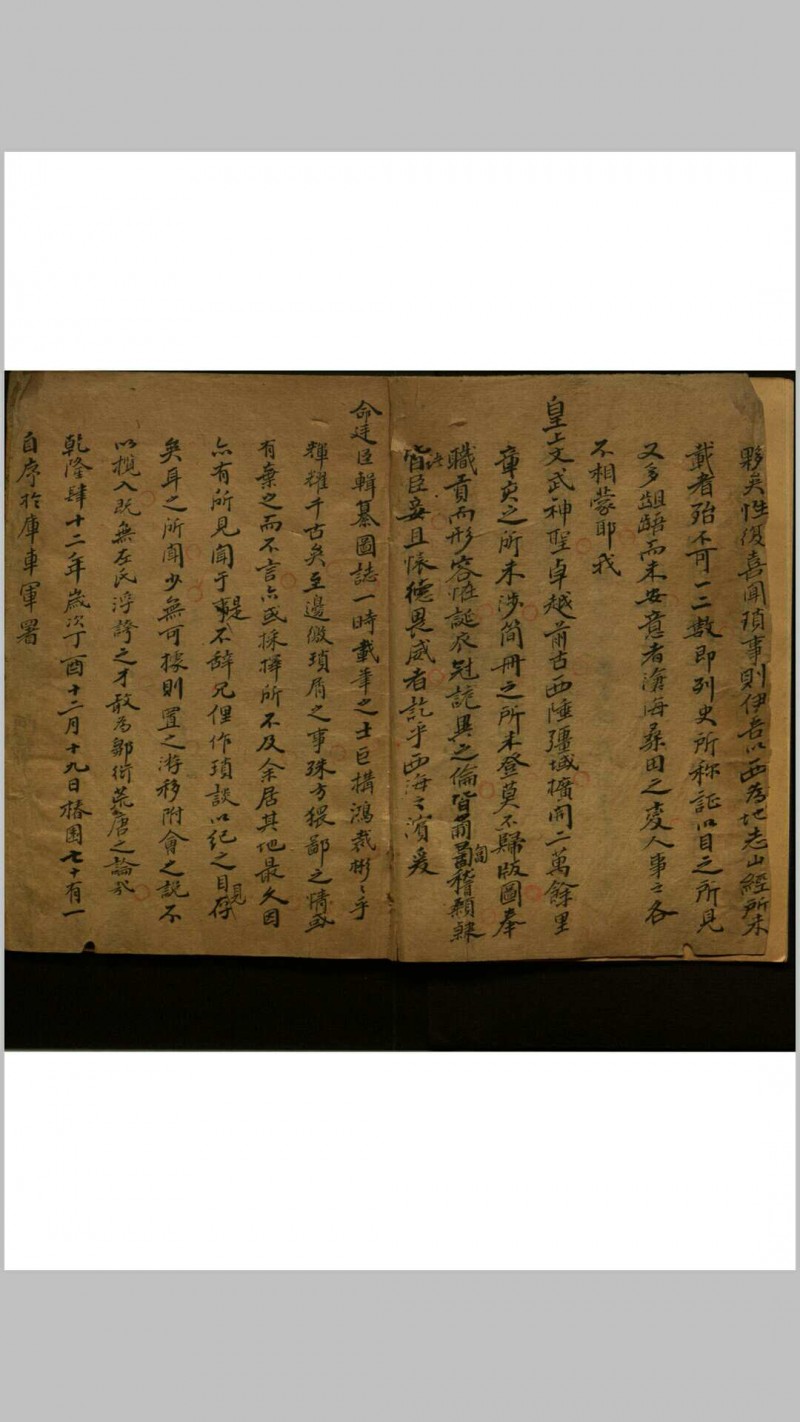 夥矣性復喜聞瑣事則伊吾以西為地志山經所未
載者殆不可一二數即列史所称証以目之所見
又多齟齬而未安意者滄海桑田之变人事之各
不相蒙耶我
皇上文武神聖卓越前古西陲疆域擴開二萬餘里
章亥之所未涉简冊之所未登莫不歸版圖奉
職貢而形容恠誕衣冠詭異之倫皆匍匐稽顙隸
皆臣妾且怀德畏威者訖乎西海之濱爰
命廷臣輯纂圖誌一時載筆之士巨搆鴻裁彬々乎
輝耀千古矣至邊徼瑣屑之事殊方猥鄙之情或
有棄之而不言亦或採擇所不及余居其地最久因
亦有所見闻于是不辞冗俚作瑣談以纪之目見存
矣耳之所聞少無可據則置之游移附會之説不
以攬入既無左氏浮誇之才敢為鄒衍荒唐之論哉
乾隆肆十二年歲次丁酉十二月十九日椿園七十有一
自序於庫車軍署